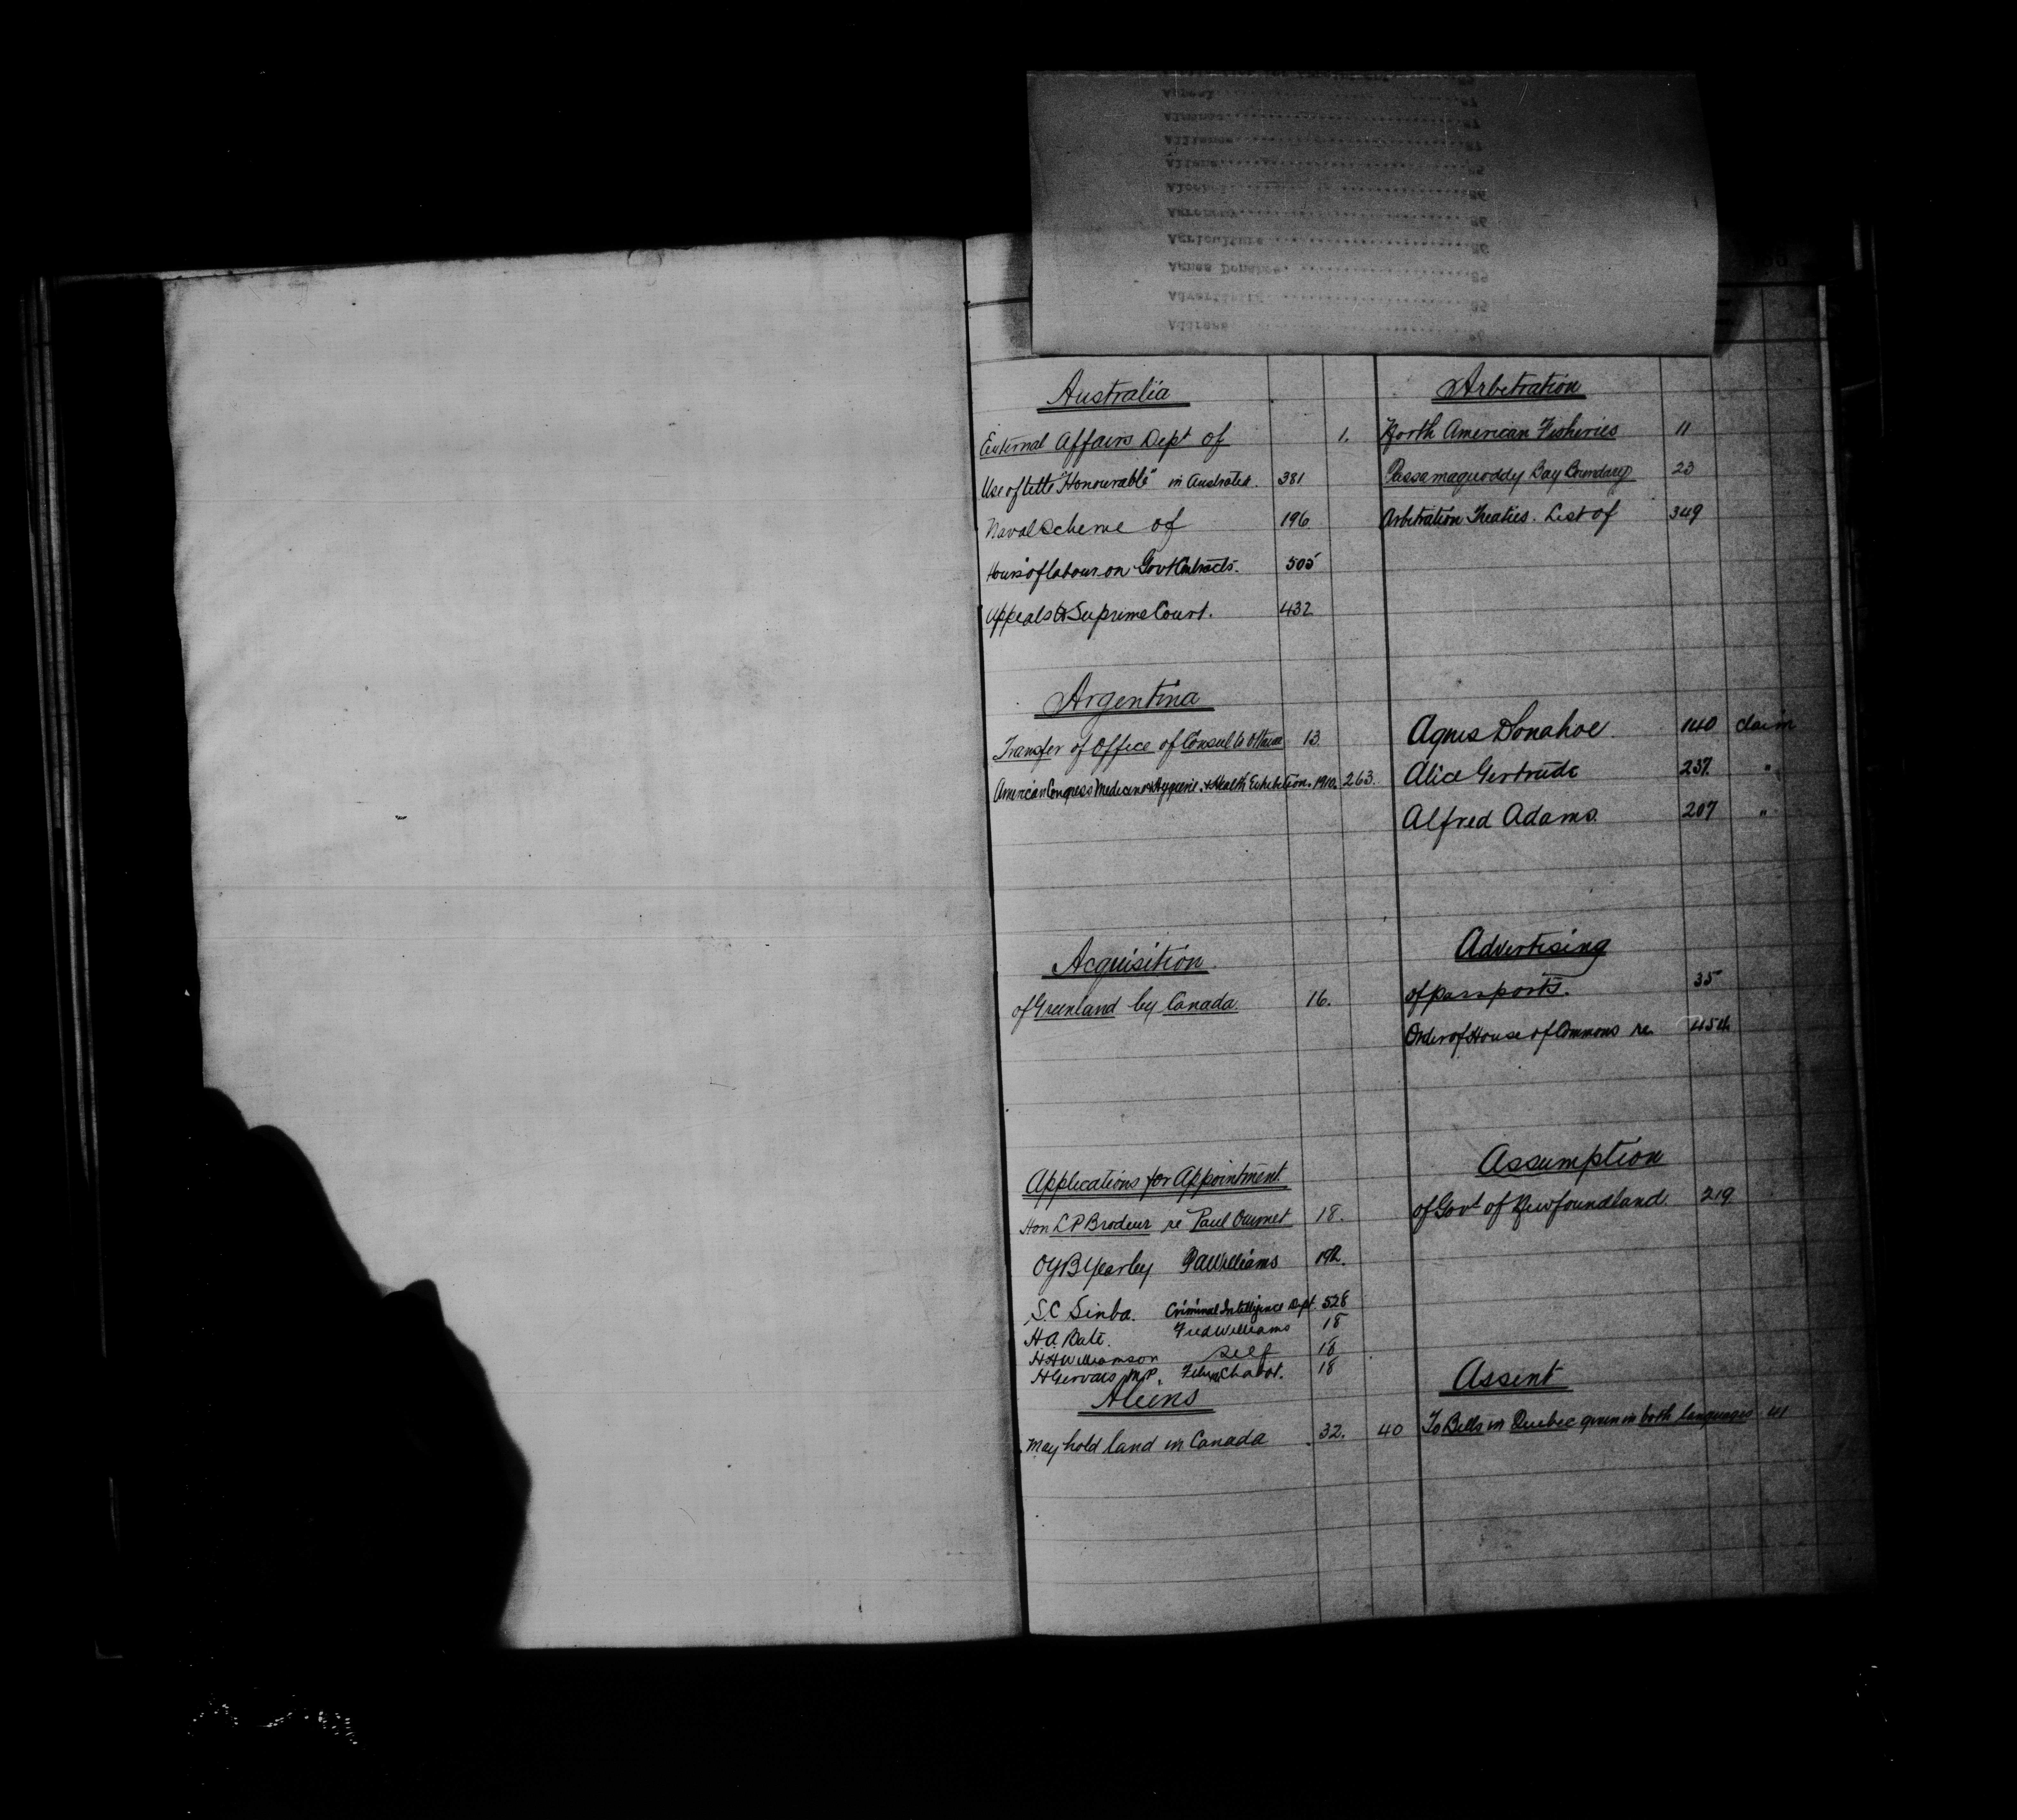 Australia
External Affairs Dept of 1.
Use of title "Honourable" in Australia. 381
Naval Scheme of 196
Hours of labour on Govt Contracts. 505
Appeals to Supreme Court. 432
Argentina
Transfer of Office of Consul to Ottawa 13
American Congress Medicine & Hygiene & Health Exhibition. 1910. 263.
Acquisition
of Greenland by Canada. 16.
Applications for Appointment
Hon L P Brodeur re Paul Ouimet 18.
O Y B Yearley Williams
S.C Sinha. Criminal Intelligence Dept. 528
H.A. Bate. Fred Williams 18
H H Williamson Self 18
H Gervais M.P. Chabot. 18
Aliens
May hold land in Canada 32. 40
Arbitration
North American Fisheries 11
Passamaquoddy Bay Boundary 23
Arbitration Treaties. List of 349
Agnes Donahoe. 140 claim
Alice Gertrude 237. "
Alfred Adams. 207 "
Advertising
of passports. 35
Order of House of Commons re 454
Assumption
of Govt of Newfoundland. 219
Assent
To Bills in Quebec given in both languages 41
Almanac
Alliance
Aliens
Alcohol
Agriculture
Agnes Donahoe
Advertising
Address